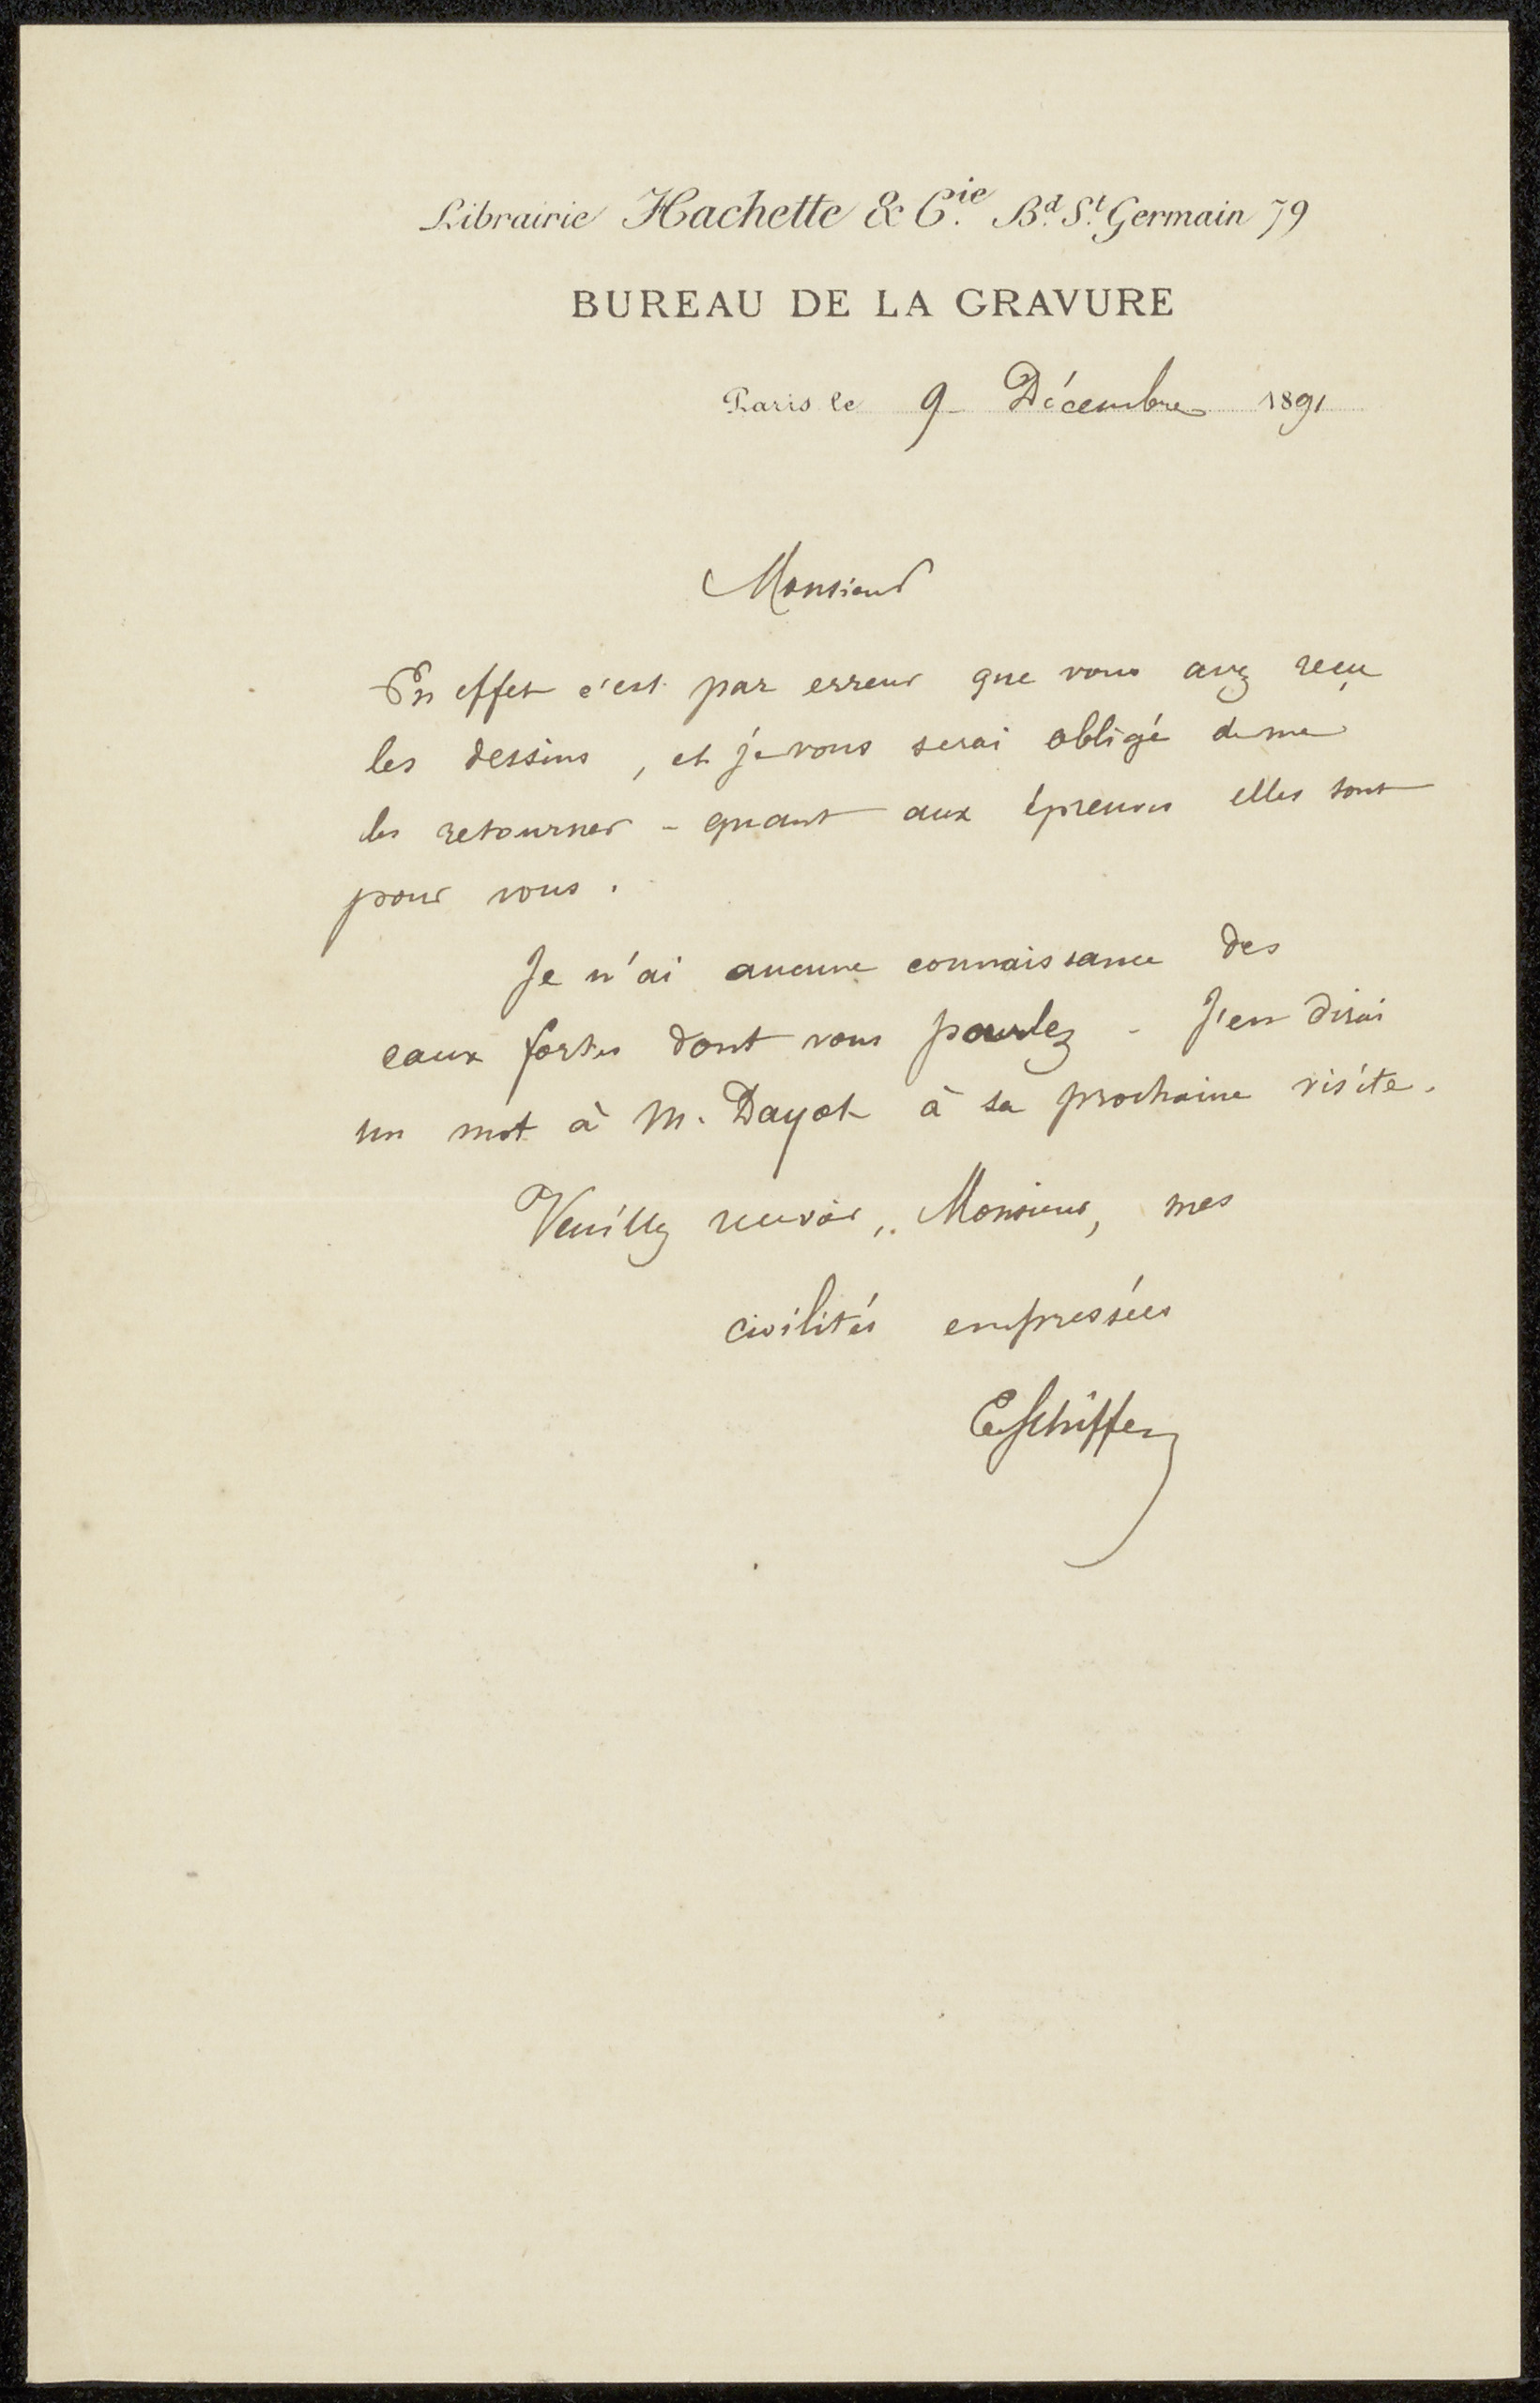 Librairie Hachette & Cie. Bd. St. Germain 79
BUREAU DE LA GRAVURE
Paris le 9 Décembre 1891
Monsieur
En effet c'est par erreur que vous avez reçu
les dessins, et je vous serai obligé de me
les retourner - quant aux épreuves elles sont
pour vous.
Je n'ai aucune connaissance des
eaux fortes dont vous parlez - J'en dirai
un mot à M. Dayot à sa prochaine visite.
Veuillez recevoir, Monsieur, mes
civilités empressées